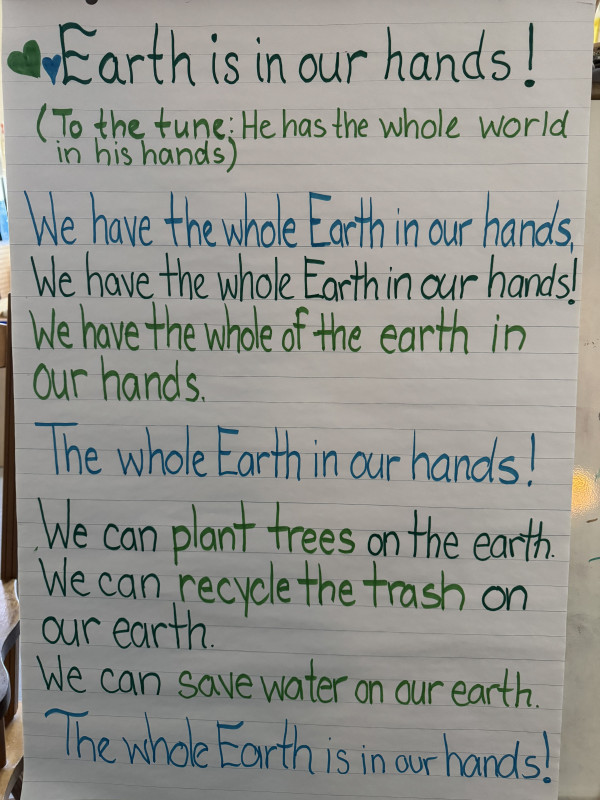 Earth is in our hands!
(To the tune: He has the whole world
in his hands)
We have the whole Earth in our hands,
We have the whole Earth in our hands!
We have the whole of the earth in
our hands.
The whole Earth in our hands!
We can plant trees on the earth.
We can recycle the trash on
our earth.
We can save water on our earth.
The whole Earth is in our hands!